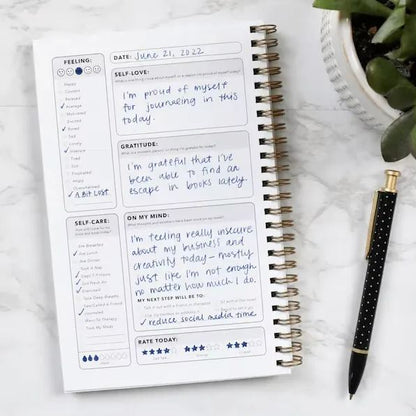 FEELING:
DATE: June 21, 2022
SELF-LOVE:
I'm proud of myself
for journaling in this
today.
GRATITUDE:
I'm grateful that I've
been able to find an
escape in books lately.
Happy
Content
Relaxed
Average
Motivated
Excited
✓ Bored
Sad
Lonely
Anxious
Frustrated
Angry
Overwhelmed
✓ A BIT LOST
SELF-CARE:
Ate Breakfast
Ate Lunch
Ate Dinner
Took A Nap
Slept 7-9 Hours
Got Fresh Air
Exercised
Took Deep Breaths
Journaled
Went To Therapy
Took My Meds
ON MY MIND:
I'm feeling really insecure
about my business and
creativity today – mostly
just like I'm not enough
no matter how much I do.
MY NEXT STEP WILL BE TO:
✓ reduce social media time.
RATE TODAY: